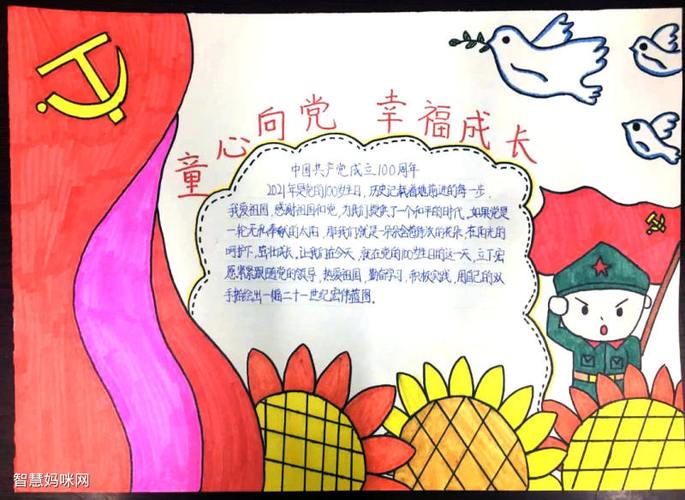 童心向党 幸福成长
中国共产党成立100周年
2021年是党的100岁生日，历史记载着她前进的每一步。
我爱祖国，感谢祖国和党，为我们提供了一个和平的时代。如果党是
一轮无私奉献的太阳，那我们就是一朵朵含苞待放的花朵，在阳光的
呵护下，茁壮成长，让我们在今天，就在党的100岁生日的这一天，立下宏
愿紧紧跟随党的领导，热爱祖国，勤奋学习，积极实践，用自己的双
手描绘出一幅二十一世纪宏伟蓝图。
智慧妈咪网